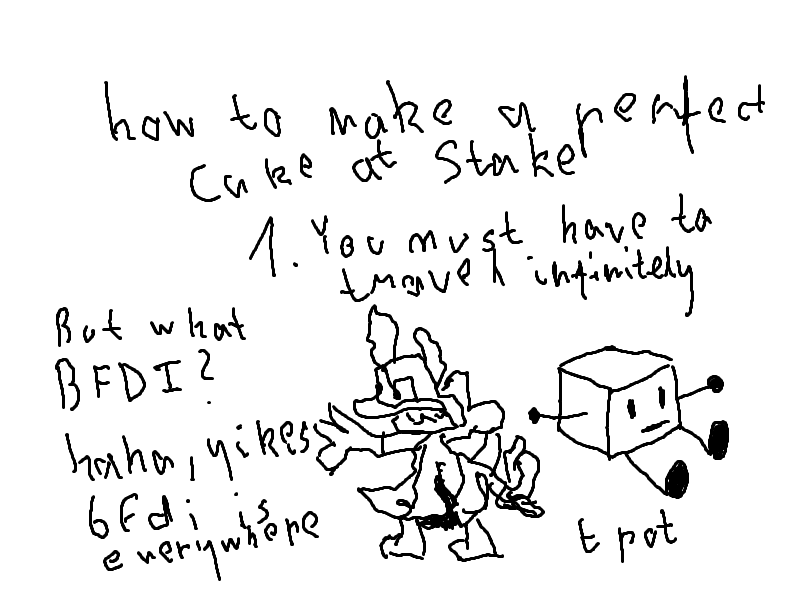 how to make a perfect
Cake at Stake
1. You must have to
travel infinitely
But what
BFDI?
haha, yikes
bFdi is
everywhere
t pot